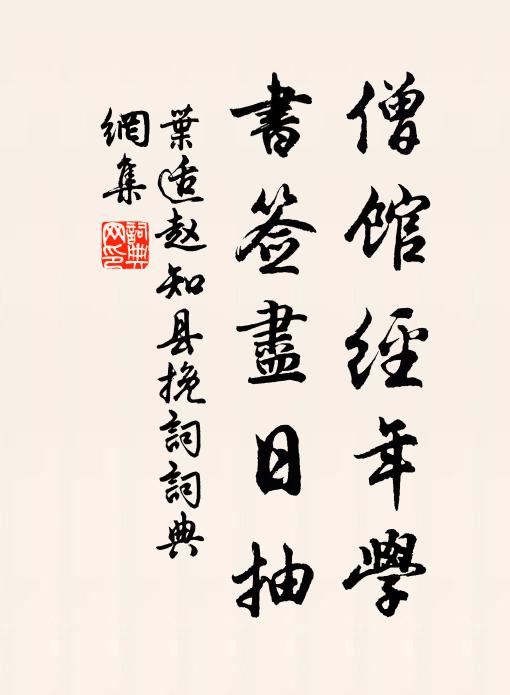 僧馆經年學
書签盡日抽
葉适赵知县挽詞詞典
網集
詞典网印